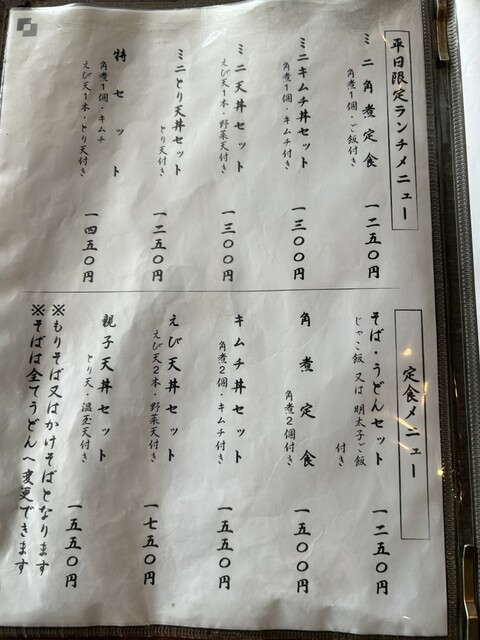 平日限定ランチメニュー
ミニ角煮定食
角煮1個・ご飯付き
一二五〇円
ミニキムチ丼セット
角煮1個・キムチ付き
一三〇〇円
ミニ天丼セット
えび天1本・野菜天付き
一三〇〇円
ミニとり天丼セット
とり天付き
一二五〇円
特セット
角煮1個・キムチ
えび天1本・とり天付き
一四五〇円
定食メニュー
そば・うどんセット
じゃこ飯 又は 明太子ご飯
付き
一二五〇円
角煮定食
角煮2個付き
一五〇〇円
キムチ丼セット
角煮2個・キムチ付き
一五五〇円
えび天丼セット
えび天2本・野菜天付き
一七五〇円
親子天丼セット
とり天・温玉天付き
一五五〇円
※もりそば又はかけそばとなります
※そばは全てうどんへ変更できます